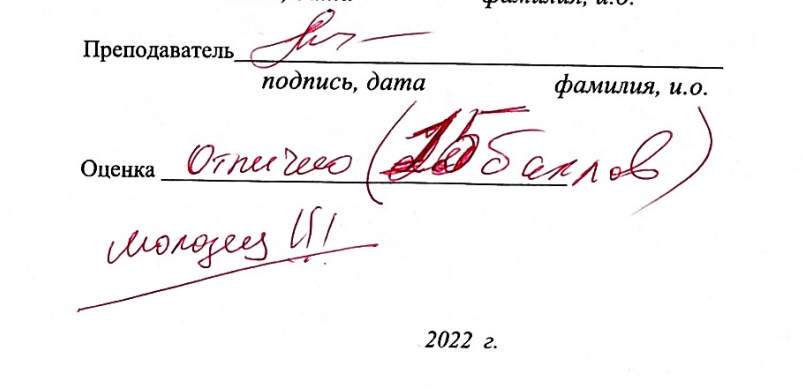 Преподаватель
подпись, дата фамилия, и.о.
Оценка Отлично (15 баллов)
молодец !!!
2022 г.